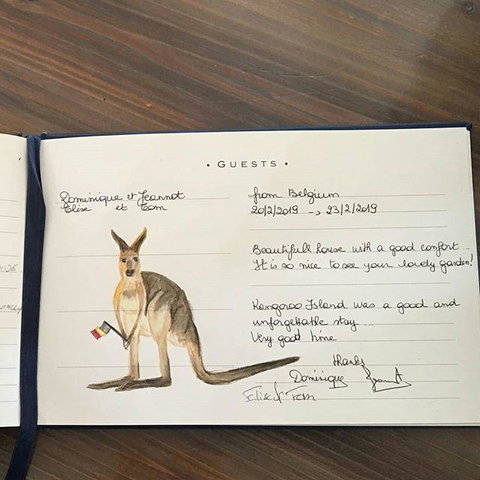 • GUESTS •
Dominique et Jeannot
Elise et Tom
from Belgium
20/2/2019 -> 23/2/2019
Beautifull house with a good confort ..
It is so nice to see your lovely garden!
Kangaroo Island was a good and
unforgettable stay ...
Very good time
thanks
Dominique
Elise & Tom